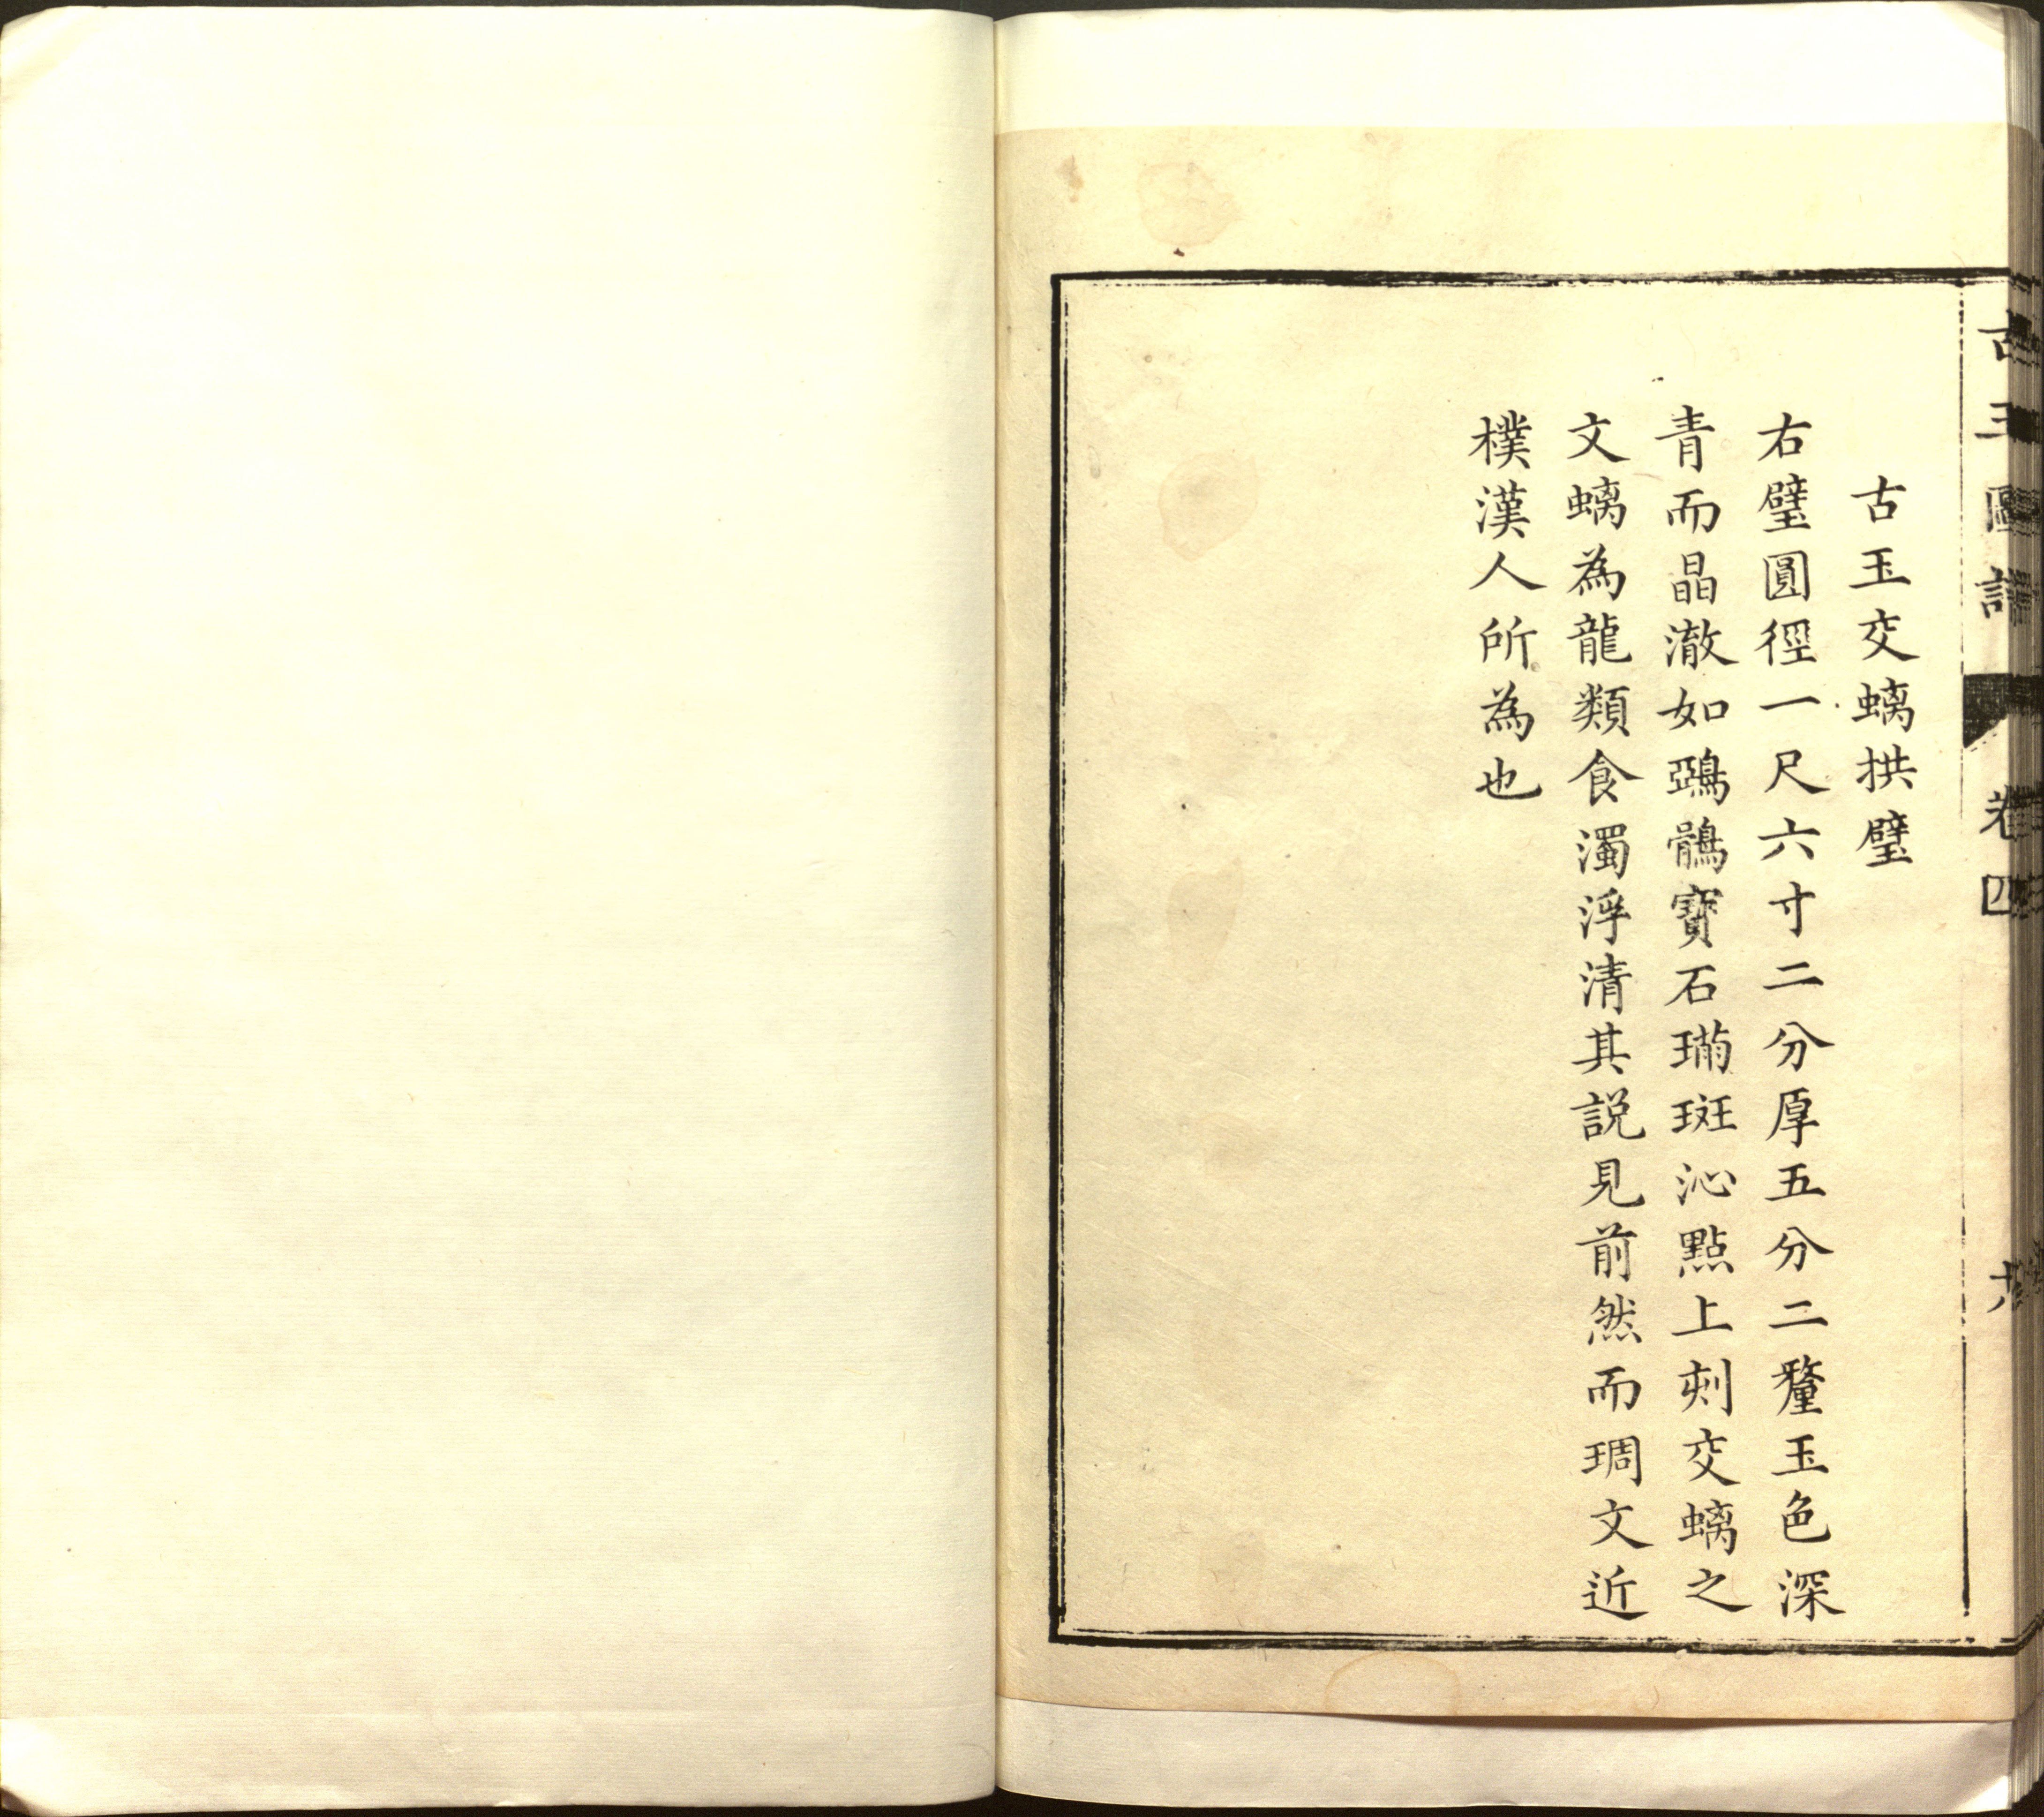 古玉圖譜 卷四
古玉交螭拱璧
右璧圓徑一尺六寸二分厚五分二釐玉色深
青而晶澈如鵶鶻寶石璊斑沁點上刻交螭之
文螭為龍類食濁浮清其說見前然而琱文近
樸漢人所為也